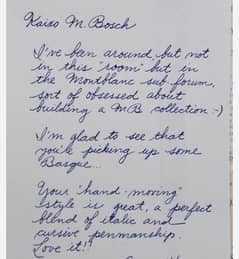 Kaiso M. Bosch
I've been around, but not
in this "room" but in
the Montblanc sub forum,
sort of obsessed about
building a MB collection :-)
I'm glad to see that
you're picking up some
Basque...
Your "hand-moving"
style is great, a perfect
blend of italic and
cursive penmanship.
Love it!